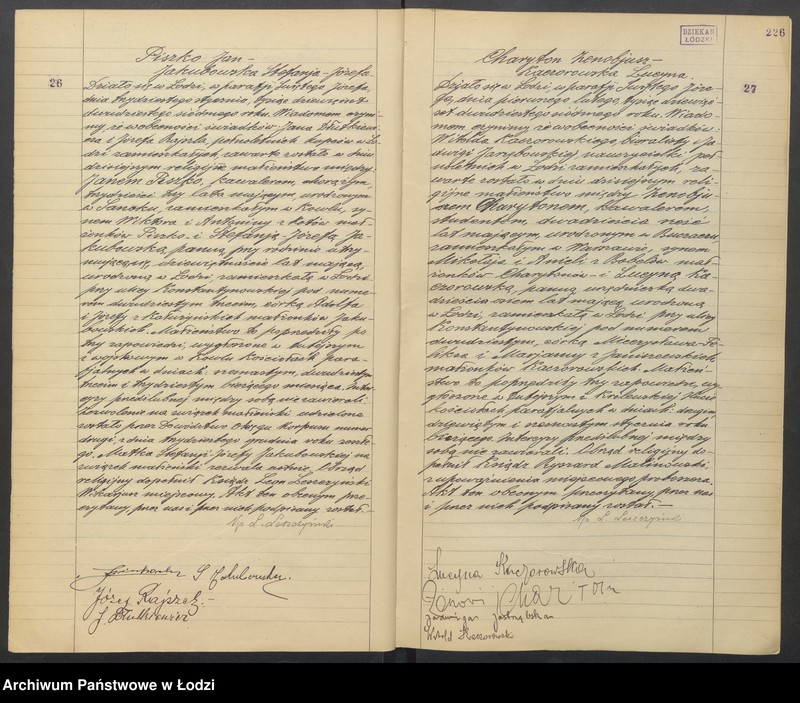 Piszko Jan -
Jakubowska Stefanja-Józefa.
26
Działo się w Łodzi, w parafji Świętego Józefa,
dnia trzydziestego stycznia, tysiąc dziewięćset
dwudziestego siódmego roku. Wiadomem czyni-
my, że w obecności świadków Jana
i Józefa Rajzela, pełnoletnich kupców w Ło-
dzi zamieszkałych, zawarte zostało w dniu
dzisiejszym religijne małżeństwo między:
Janem Piszko, kawalerem,
trzydzieści trzy lata mającym, urodzonym
w Sanoku, zamieszkałym w Kowlu, sy-
nem Wiktora i Antoniny z Kotów mał-
żonków Piszko i Stefanją Józefą Ja-
kubowską, panną, przy rodzinie utrzy-
mującą się, dziewiętnaście lat mającą,
urodzoną w Łodzi zamieszkałą w Łodzi
przy ulicy Konstantynowskiej pod nume-
rem dwudziestym trzecim, córką Adolfa
i Józefy z małżonków Jaku-
bowskich. Małżeństwo to poprzedziły
trzy zapowiedzi, wygłoszone w tutejszym
i wojskowym w Kowlu kościołach para-
fjalnych w dniach: szesnastym, dwudziestym
trzecim i trzydziestym bieżącego miesiąca. Inter-
cyzy przedślubnej między sobą nie zawarli.
Pozwolenie na związek małżeński udzielone
zostało przez Dowództwo Okręgu Korpusu numer
drugi, z dnia trzydziestego grudnia roku zeszłe-
go. Matka Stefanji Józefy Jakubowskiej na
związek małżeński zezwala ustnie. Obrzęd
religijny dopełnił Ksiądz Leon Leszczyński
Wikarjusz miejscowy. Akt ten obecnym prze-
czytany, przez nas i przez nich podpisany został.-
Ks. L. Leszczyński
S. Jakubowska.
Józef Rajzel.
DZIEKAN
ŁÓDZKI
226
Charyton Zenobjusz -
Kaczorowska Lucyna.
27
Działo się w Łodzi, w parafji Świętego Józe-
fa, dnia pierwszego lutego, tysiąc dziewięć-
set dwudziestego siódmego roku. Wiado-
mem czynimy, że w obecności świadków:
Witolda Kaczorowskiego, biuralisty i Ja-
dwigi Jastrzębskiej, nauczycielki, peł-
noletnich w Łodzi zamieszkałych, za-
warte zostało w dniu dzisiejszym reli-
gijne małżeństwo między Zenobju-
szem Charytonem, kawalerem,
studentem, dwadzieścia sześć
lat mającym, urodzonym w Buczaczu,
zamieszkałym w Warszawie, synem
Mikołaja i Anieli z małż-
żonków Charytonów - i Lucyną Ka-
czorowską, panną, urzędniczką, dwa-
dzieścia osiem lat mającą, urodzoną
w Łodzi, zamieszkałą w Łodzi przy ulicy
Konstantynowskiej pod numerem
dwudziestym, córką Mieczysława-Fe-
liksa i Marjanny z
małżonków Kaczorowskich. Małżeń-
stwo to poprzedziły trzy zapowiedzi, wy-
głoszone w tutejszym i
kościołach parafjalnych w dniach: drugim,
dziewiątym i szesnastym stycznia roku
bieżącego. Intercyzy przedślubnej między
sobą nie zawarli. Obrząd religijny do-
pełnił Ksiądz Ryszard Malinowski,
z upoważnienia miejscowego proboszcza.
Akt ten obecnym przeczytany, przez nas
i przez nich podpisany został. -
Ks. L. Leszczyński
Lucyna Kaczorowska
Charyton
Jadwiga Jastrzębska
Witold Kaczorowski
Archiwum Państwowe w Łodzi